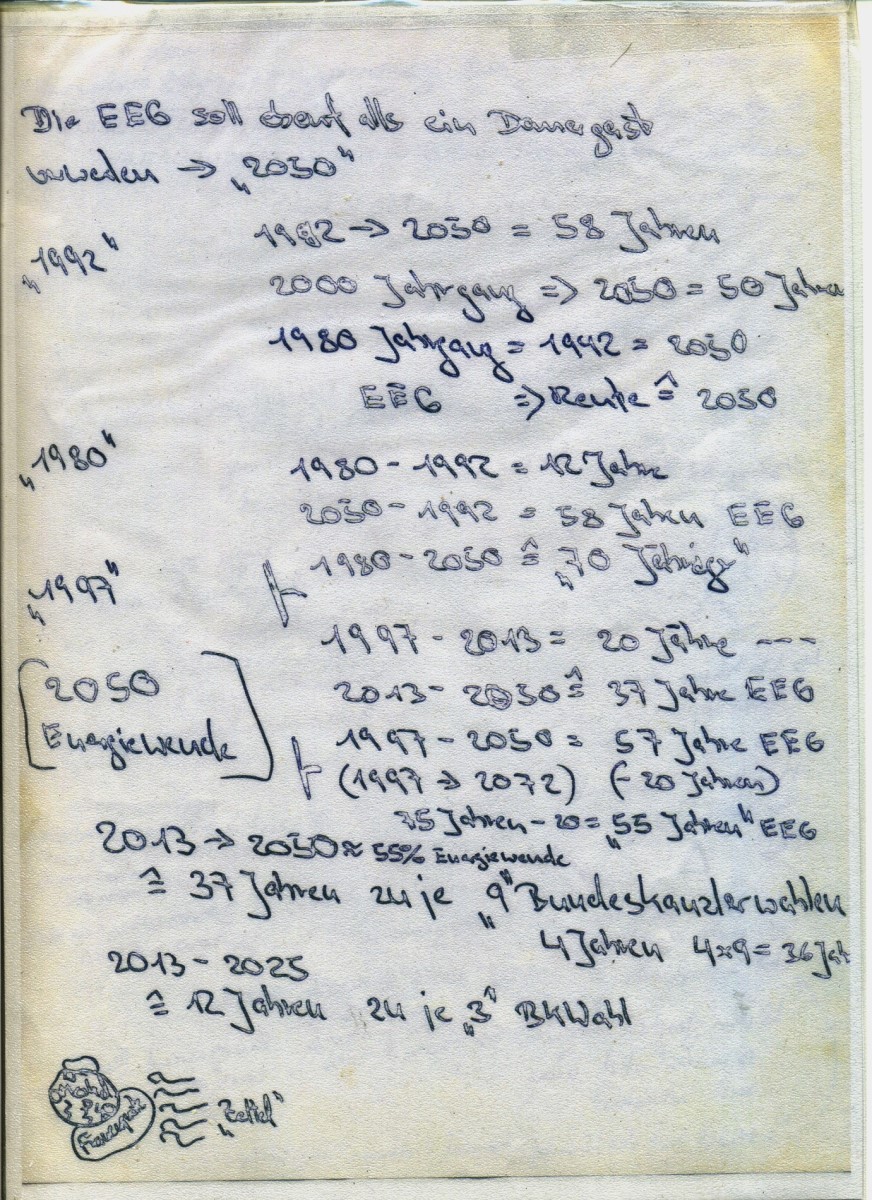 Die EEG soll ebenfalls ein Dauergast
„2050“
„1992“
1992 → 2050 = 58 Jahren
2000 Jahrgang => 2050 = 50 Jahren
1980 Jahrgang = 1992 = 2050
EEG => Rente ≙ 2050
„1980“
1980 - 1992 = 12 Jahre
2050 - 1992 = 58 Jahren EEG
1980 - 2050 ≙ „70 Jährige“
„1997“
1997 - 2013 = 20 Jahre ---
2050
Energiewende
2013 - 2050 ≙ 37 Jahre EEG
1997 - 2050 = 57 Jahre EEG
(1997 → 2072) (- 20 Jahren)
75 Jahren - 20 = „55 Jahren“ EEG
2013 → 2050 ≈ 55% Energiewende
≙ 37 Jahren zu je „9“ Bundeskanzlerwahlen
4 Jahren 4x9 = 36 Jah
2013 - 2025
≙ 12 Jahren zu je „3“ BKWahl
„Zettel“